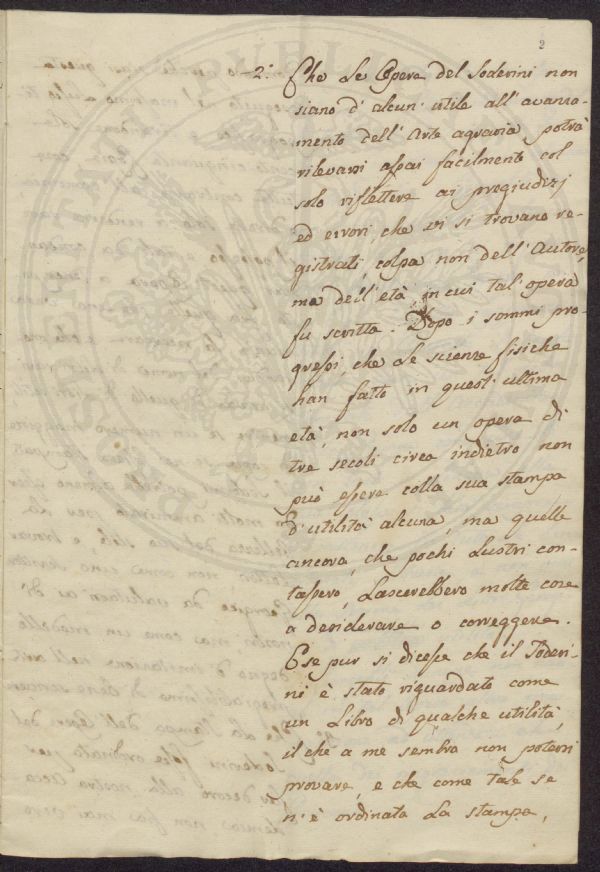 2
2.° Che Le Opere del Soderini non
siano d'alcun' utile all'avanza-
mento dell'Arte agraria potrà
rilevarsi assai facilmente col
solo riflettere ai pregiudizj
ed errori, che vi si trovano re-
gistrati, colpa non dell'Autore,
ma dell'età in cui tal'opera
fu scritta. Dopo i sommi pro-
gressi, che Le scienze fisiche
han fatto in quest'ultima
età, non solo un opera di
tre secoli circa indietro non
può essere colla sua stampa
d'utilità alcuna, ma quelle
ancora, che pochi Lustri con-
tassero, Lascerebbero molte cose
a desiderare o correggere.
E se pur si dicesse che il Soderi-
ni è stato riguardato come
un Libro di qualche utilità,
il che a me sembra non potersi
provare, e che come tale se
n'è ordinata La stampa,